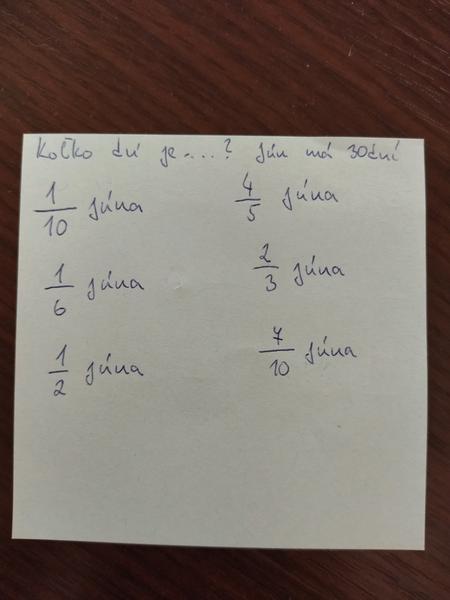 Koľko dní je....? jún má 30dní
1/10 júna
4/5 júna
1/6 júna
2/3 júna
1/2 júna
7/10 júna